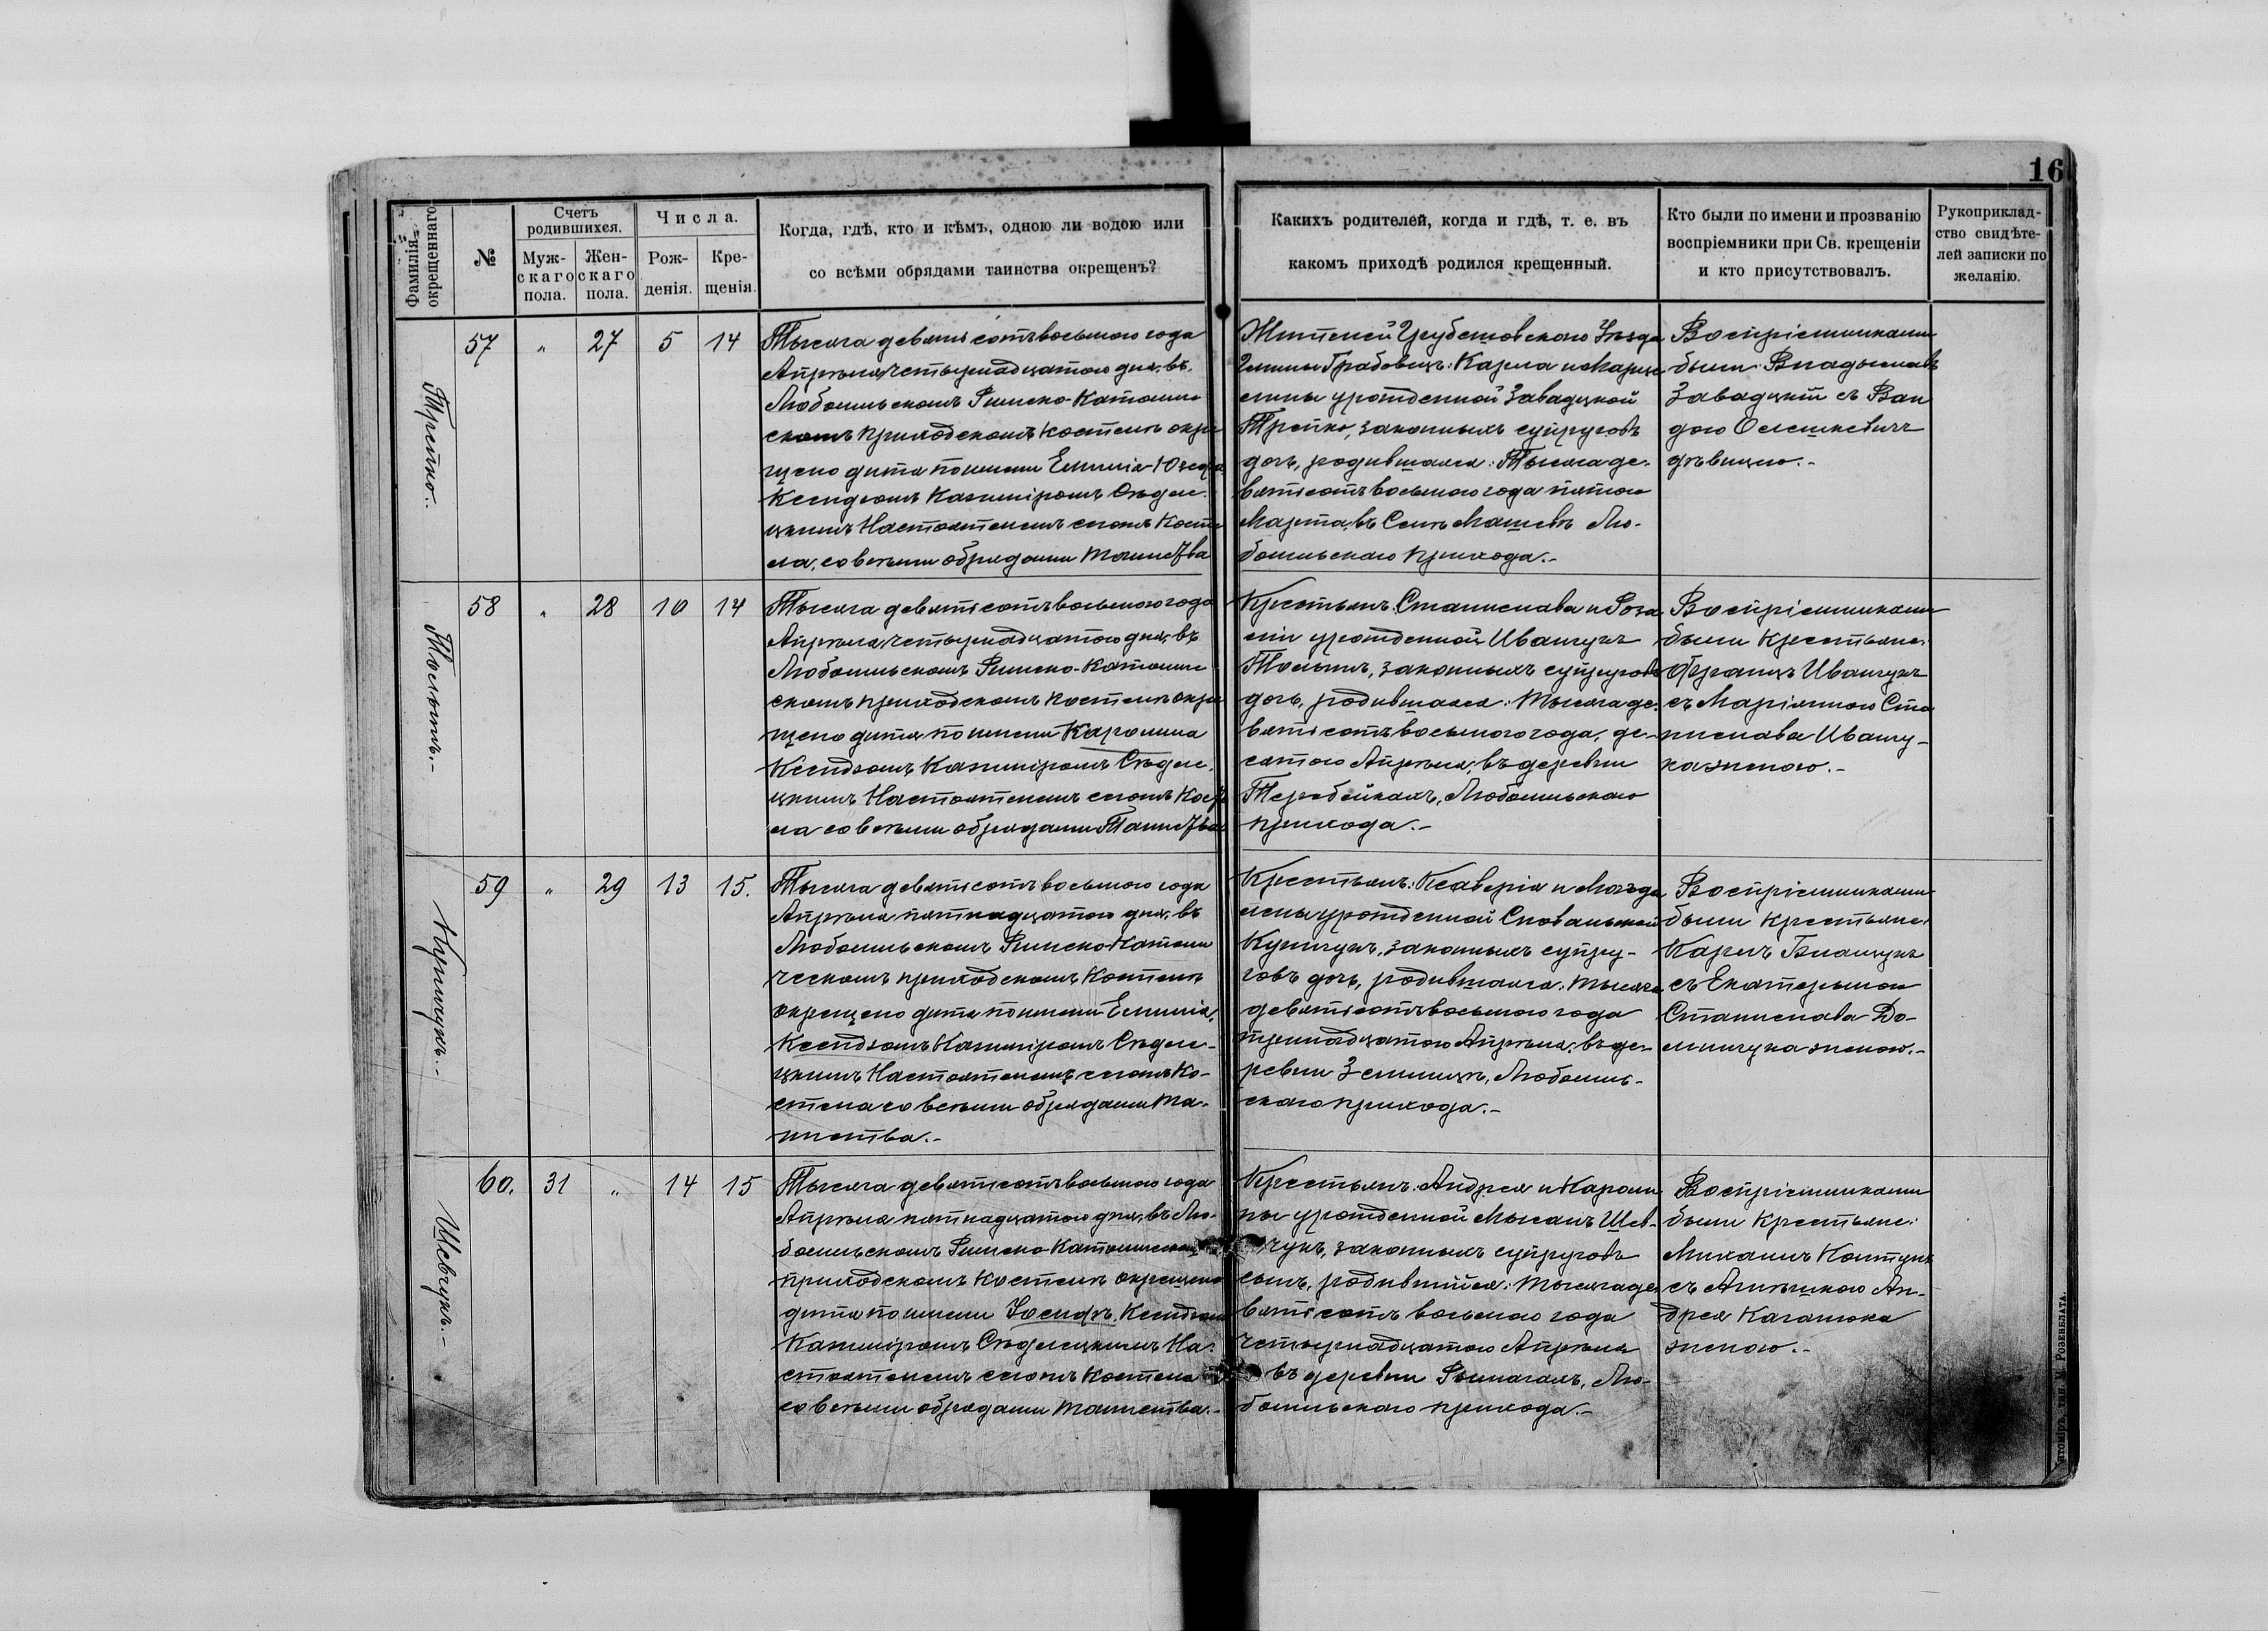 16
Фамилія окрещеннаго
№
Счетъ родившихся.
Мужскаго пола.
Женскаго пола.
Числа.
Рожденія.
Крещенія.
Когда, гдѣ, кто и кѣмъ, одною ли водою или
со всѣми обрядами таинства окрещенъ?
Какихъ родителей, когда и гдѣ, т. е. въ
какомъ приходѣ родился крещенный.
Кто были по имени и прозванію
воспріемники при Св. крещеніи
и кто присутствовалъ.
Рукоприклад-
ство свидѣте-
лей записки по
желанію.
Трепко.
57 „ 27 5 14
Тысяча девятьсотъ восьмого года
Апрѣля четырнадцатого дня, въ
Любомльскомъ Римско-Католиче
скомъ приходскомъ костелѣ окре
щено дитя по имени Емилія-Юзефа
Ксендзомъ Казиміромъ Сѣдле-
цкимъ Настоятелемъ сегожъ Косте
ла, со всѣми обрядами Таинства
Жителей Грубешовскаго Уѣзда
Гмины Грабовецъ: Карла и Марце
лины урожденной Завадцкой
Трепко, законныхъ супруговъ
дочь, родившаяся: Тысяча де-
вятьсотъ восьмого года пятого
Марта, въ Селѣ Машевѣ Лю-
бомльскаго прихода.-
Воспріемниками
были: Владыславъ
Завадцкій съ Ван
дою Олешкевичъ
дѣвицею.-
Тослюкъ.-
58 „ 28 10 14
Тысяча девятьсотъ восьмого года
Апрѣля четырнадцатого дня, въ
Любомльскомъ Римско-Католиче
скомъ приходскомъ костелѣ окре
щено дитя по имени Каролина
Ксендзомъ Казиміромъ Сѣдле-
цкимъ Настоятелемъ сегожъ Косте
ла со всѣми обрядами Таинства
Крестьянъ: Станислава и Роза
ліи урожденной Иванчукъ
законныхъ супруговъ
дочь, родившаяся: Тысяча де-
вятьсотъ восьмого года, де-
сятого Апрѣля, въ деревни
Теребейкахъ, Любомльскаго
прихода.-
Воспріемниками
были крестьяне:
Францъ Иванчукъ
съ Маріянною Ста
нислава Иванчу-
ка женою.-
Кушчукъ.-
59 „ 29 13 15.
Тысяча девятьсотъ восьмого года
Апрѣля пятнадцатого дня, въ
Любомльскомъ Римско-Католи
ческомъ приходскомъ Костелѣ
окрещено дитя по имени Емилія,
Ксендзомъ Казиміромъ Сѣдле-
цкимъ Настоятелемъ сегожъ Ко-
стела со всѣми обрядами Та-
инства.-
Крестьянъ: Ксаверія и Магда
лены урожденной
законныхъ супру-
говъ дочь, родившаяся: Тысяча
девятьсотъ восьмого года
тринадцатого Апрѣля, въ де-
ревни Землицѣ, Любомль-
скаго прихода.-
Воспріемниками
были крестьяне:
Карлъ
съ Екатериною
Станислава До-
минчука женою.-
Шевчукъ.-
60. 31 „ 14 15
Тысяча девятьсотъ восьмого года
Апрѣля пятнадцатого дня, въ Лю-
бомльскомъ Римско-Католическомъ
приходскомъ Костелѣ окрещено
дитя по имени Іосифъ, Ксендзомъ
Казиміромъ Сѣдлецкимъ На-
стоятелемъ сегожъ Костела
со всѣми обрядами Таинства.-
Крестьянъ: Андрея и Кароли
ны урожденной Шев-
чукъ, законныхъ супруговъ
сынъ, родившійся: Тысяча де-
вятьсотъ восьмого года
четырнадцатого Апрѣля
въ деревни Рымачахъ, Лю-
бомльскаго прихода.-
Воспріемниками
были крестьяне:
Михаилъ Колтунъ
съ Ан-
дрея Качанюка
женою.-